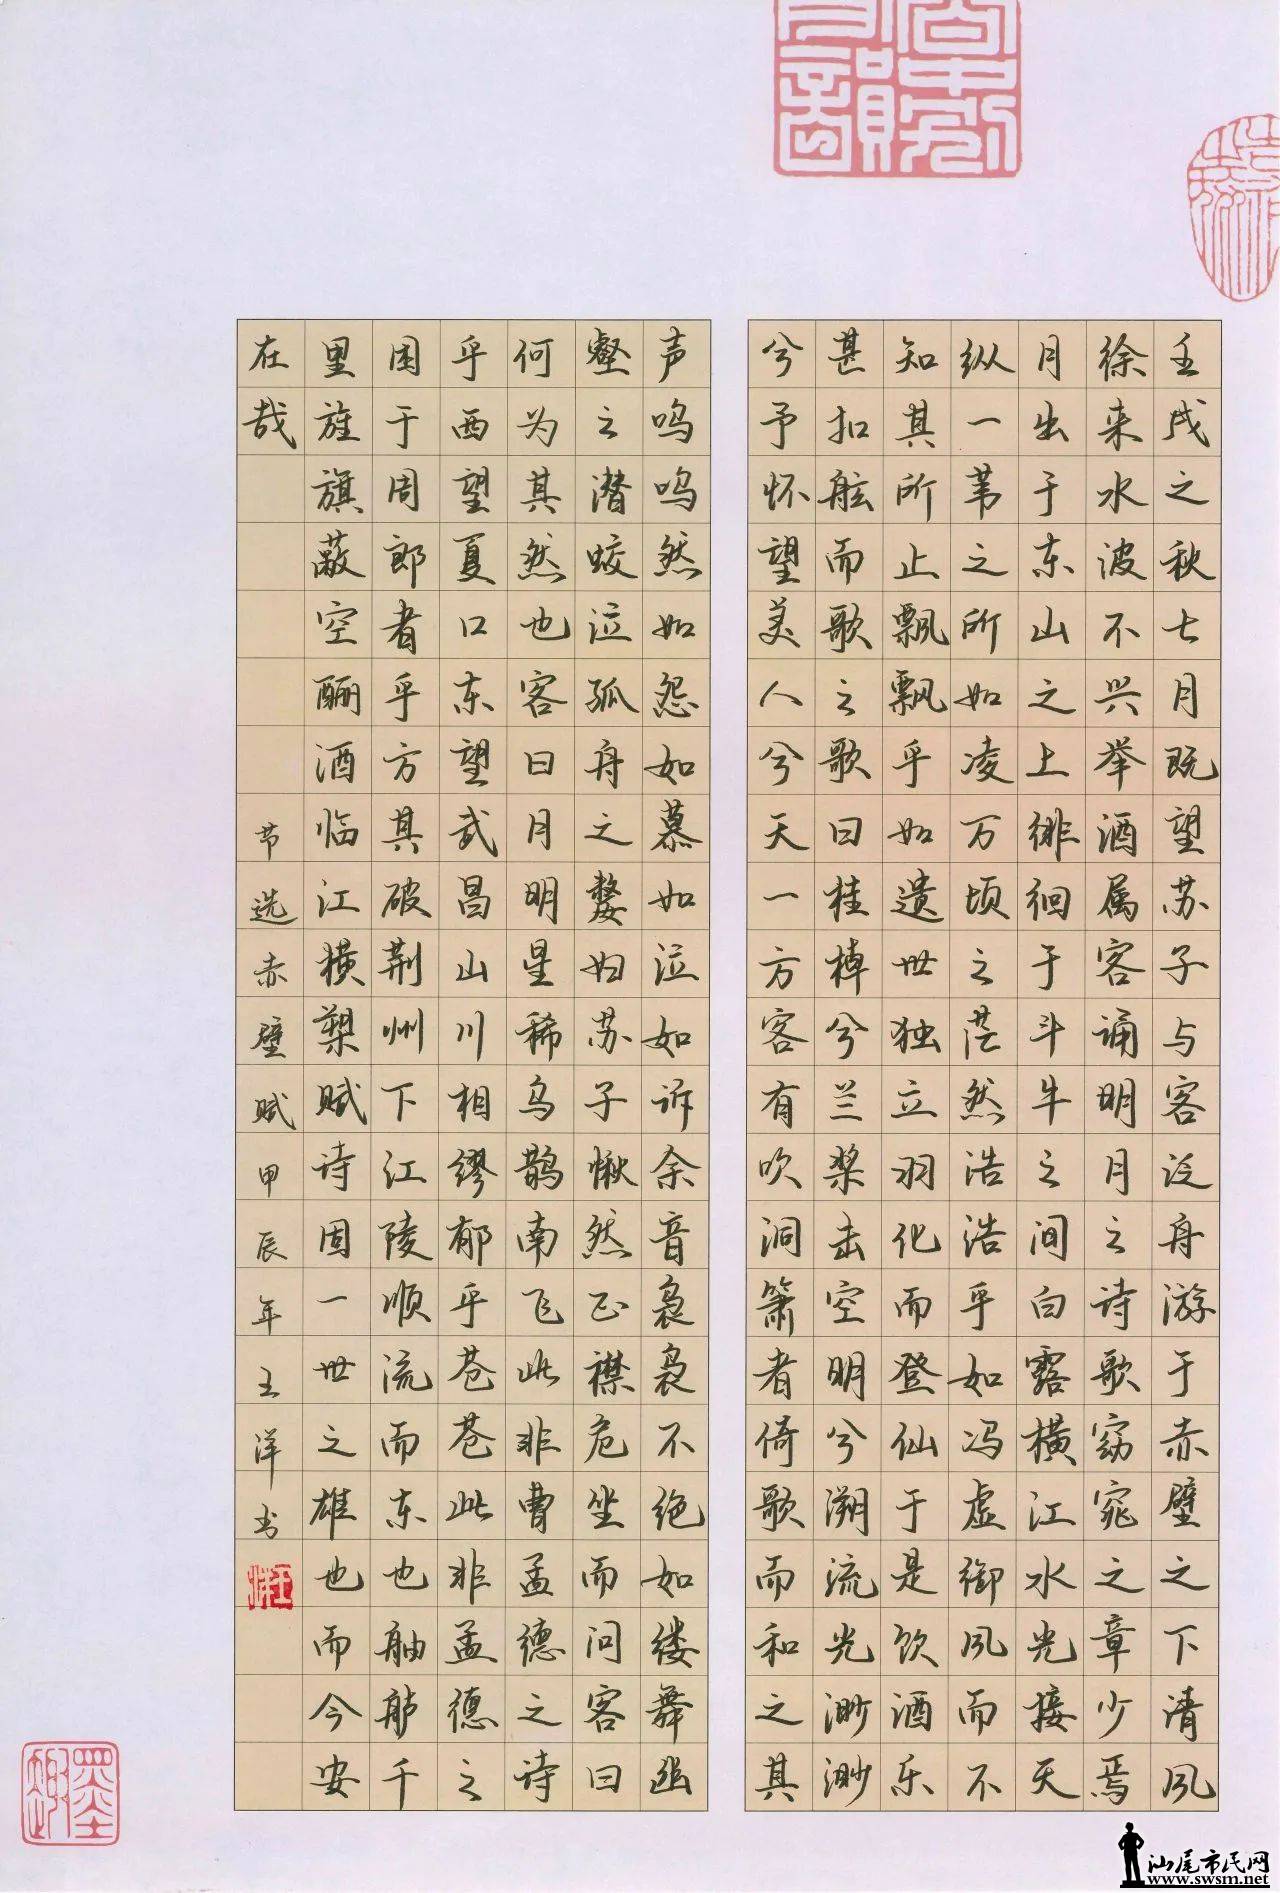 壬戌之秋七月既望苏子与客泛舟游于赤壁之下清风
徐来水波不兴举酒属客诵明月之诗歌窈窕之章少焉
月出于东山之上徘徊于斗牛之间白露横江水光接天
纵一苇之所如凌万顷之茫然浩浩乎如冯虚御风而不
知其所止飘飘乎如遗世独立羽化而登仙于是饮酒乐
甚扣舷而歌之歌曰桂棹兮兰桨击空明兮溯流光渺渺
兮予怀望美人兮天一方客有吹洞箫者倚歌而和之其
声呜呜然如怨如慕如泣如诉余音袅袅不绝如缕舞幽
壑之潜蛟泣孤舟之嫠妇苏子愀然正襟危坐而问客曰
何为其然也客曰月明星稀乌鹊南飞此非曹孟德之诗
乎西望夏口东望武昌山川相缪郁乎苍苍此非孟德之
困于周郎者乎方其破荆州下江陵顺流而东也舳舻千
里旌旗蔽空酾酒临江横槊赋诗固一世之雄也而今安
在哉 节选赤壁赋甲辰年王洋书
墨趣
汕尾市民网
www.swsm.net